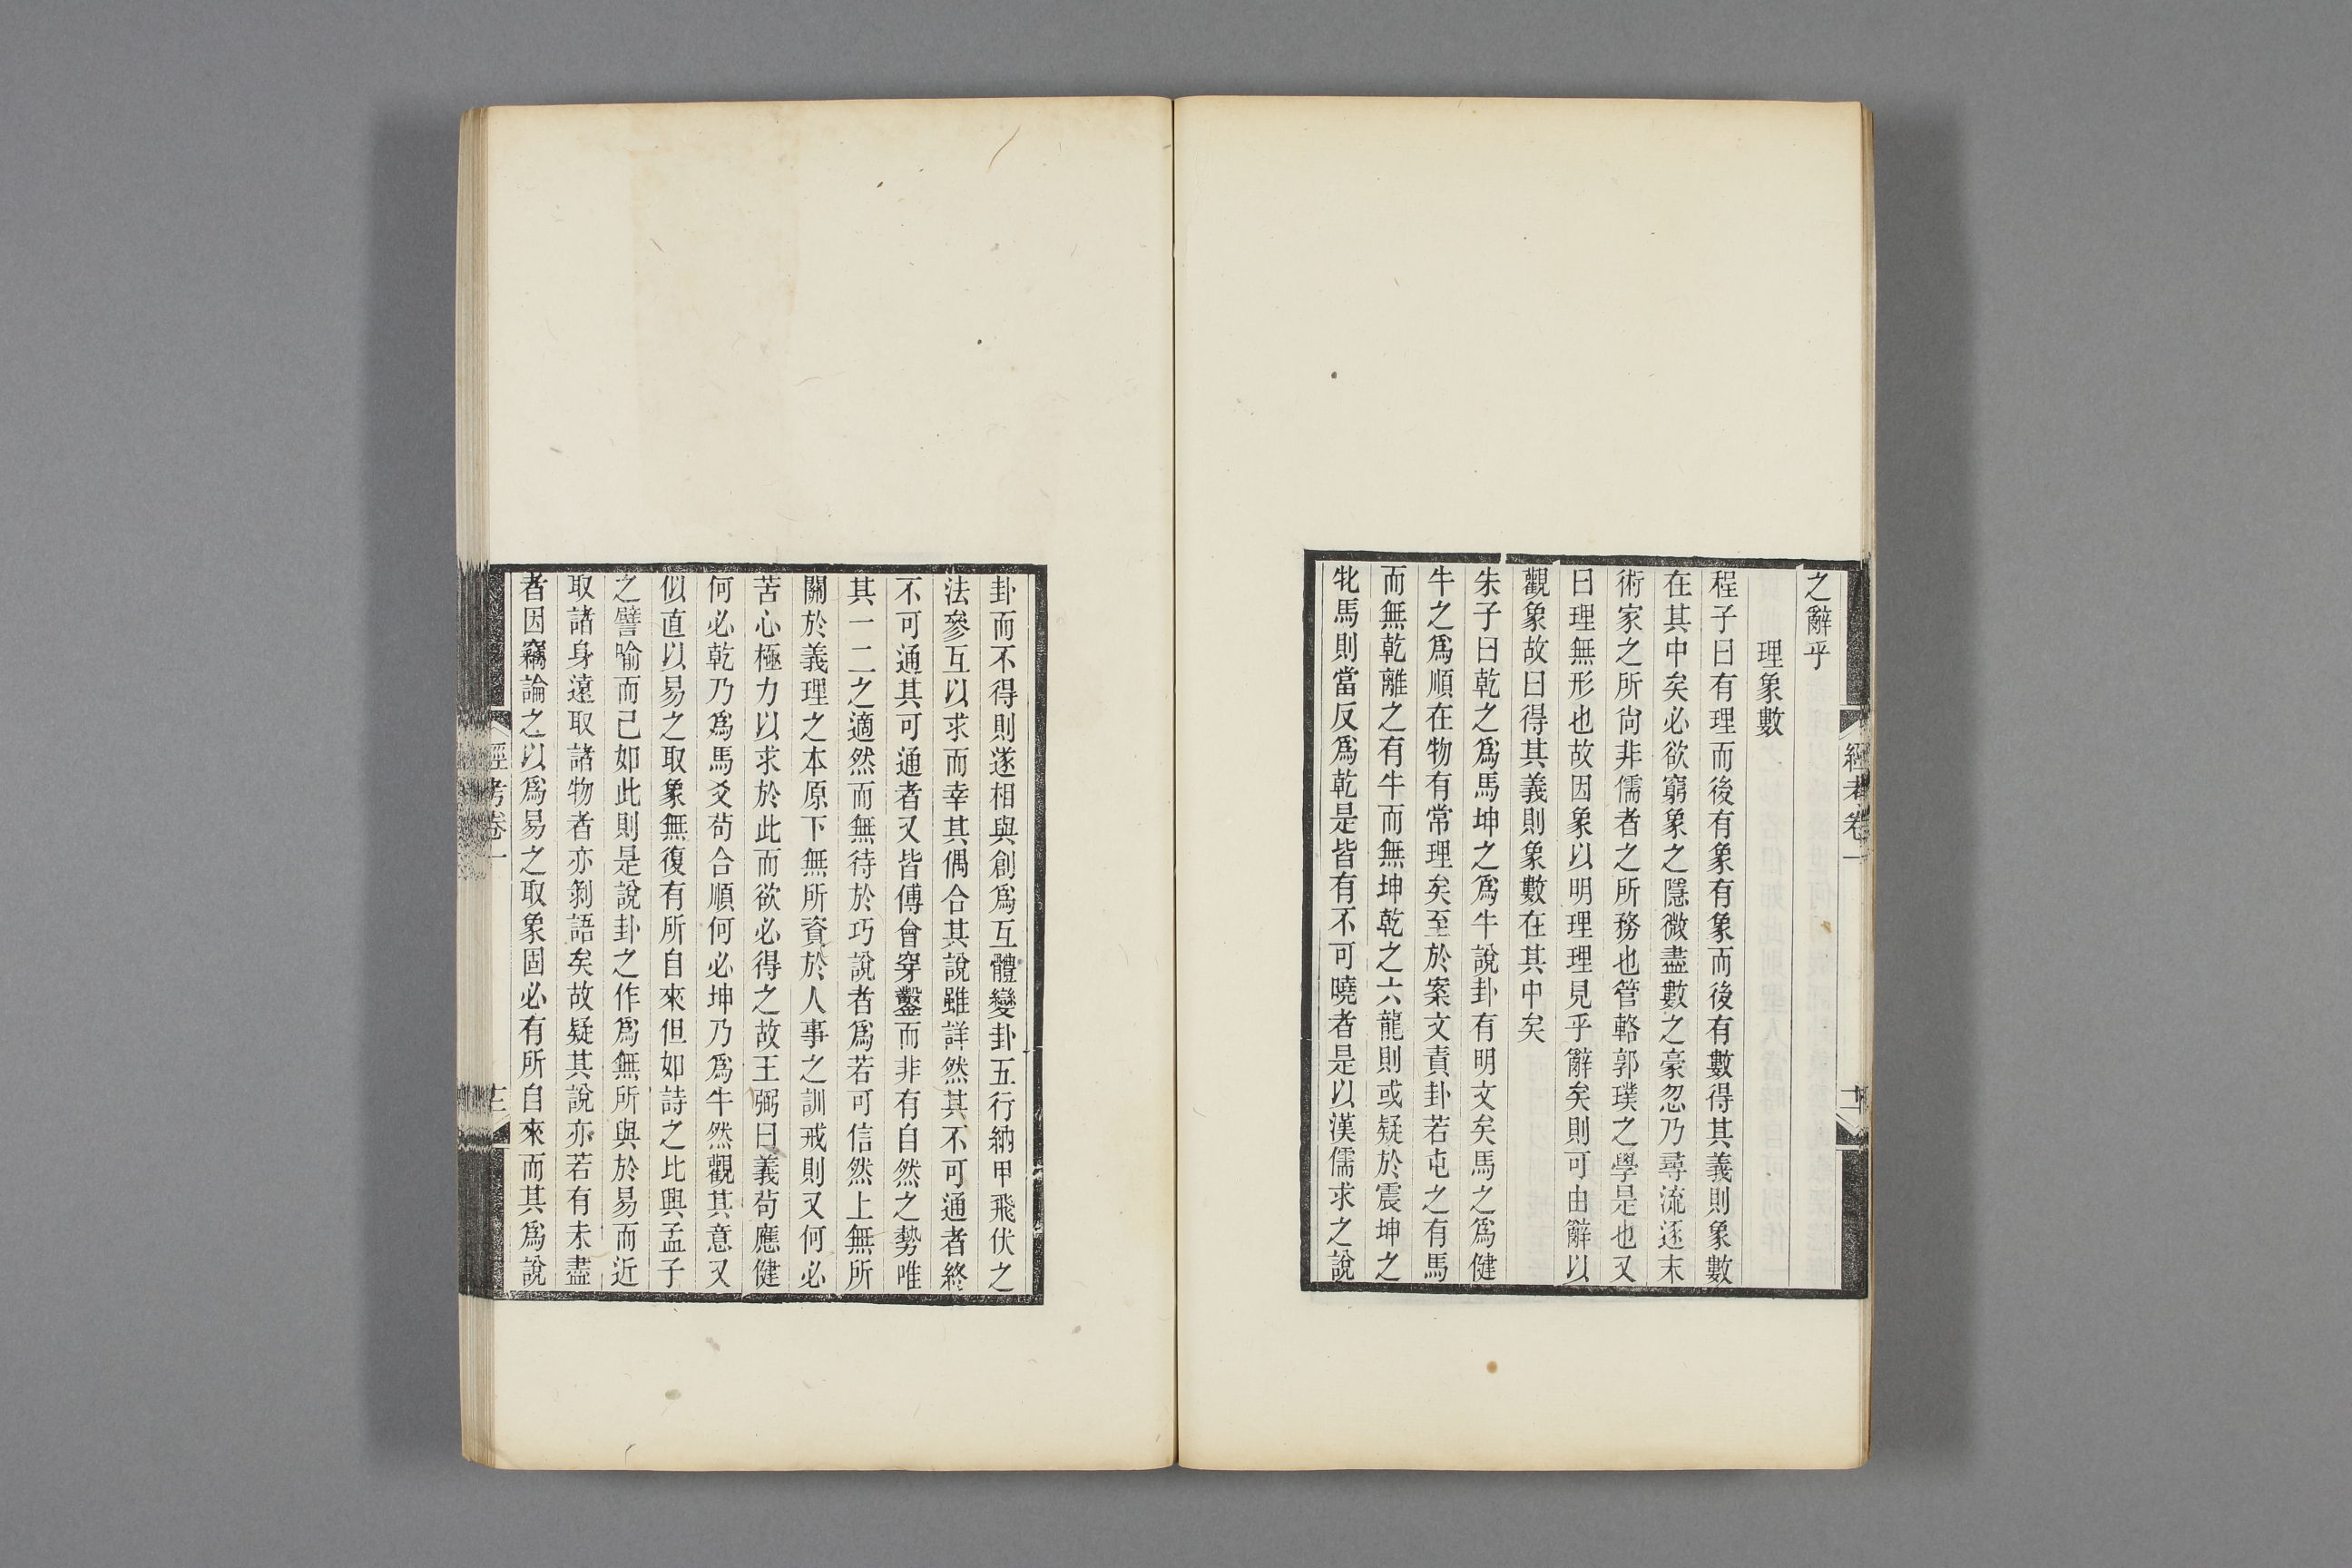 之辭乎
理象數
程子曰有理而後有象有象而後有數得其義則象數
在其中矣必欲窮象之隱微盡數之豪忽乃尋流逐末
術家之所尙非儒者之所務也管輅郭璞之學是也又
曰理無形也故因象以明理理見乎辭矣則可由辭以
觀象故曰得其義則象數在其中矣
朱子曰乾之爲馬坤之爲牛說卦有明文矣馬之爲健
牛之爲順在物有常理矣至於案文責卦若屯之有馬
而無乾離之有牛而無坤乾之六龍則或疑於震坤之
牝馬則當反爲乾是皆有不可曉者是以漢儒求之說
經考卷一
十二
卦而不得則遂相與創爲互體變卦五行納甲飛伏之
法參互以求而幸其偶合其說雖詳然其不可通者終
不可通其可通者又皆傅會穿鑿而非有自然之勢唯
其一二之適然而無待於巧說者爲若可信然上無所
關於義理之本原下無所資於人事之訓戒則又何必
苦心極力以求於此而欲必得之故王弼曰義苟應健
何必乾乃爲馬爻苟合順何必坤乃爲牛然觀其意又
似直以易之取象無復有所自來但如詩之比興孟子
之譬喻而已如此則是說卦之作爲無所與於易而近
取諸身遠取諸物者亦剩語矣故疑其說亦若有未盡
者因竊論之以爲易之取象固必有所自來而其爲說
經考卷一